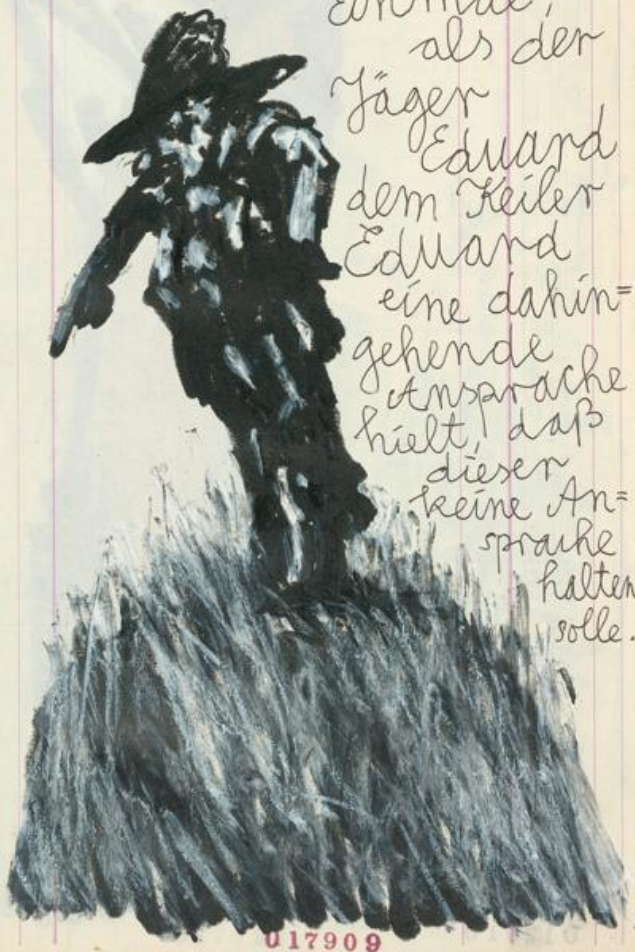 Einmal,
als der
Jäger
Eduard
dem Keiler
Eduard
eine dahin=
gehende
Ansprache
hielt, daß
dieser
keine An=
sprache
halten
solle.
017909